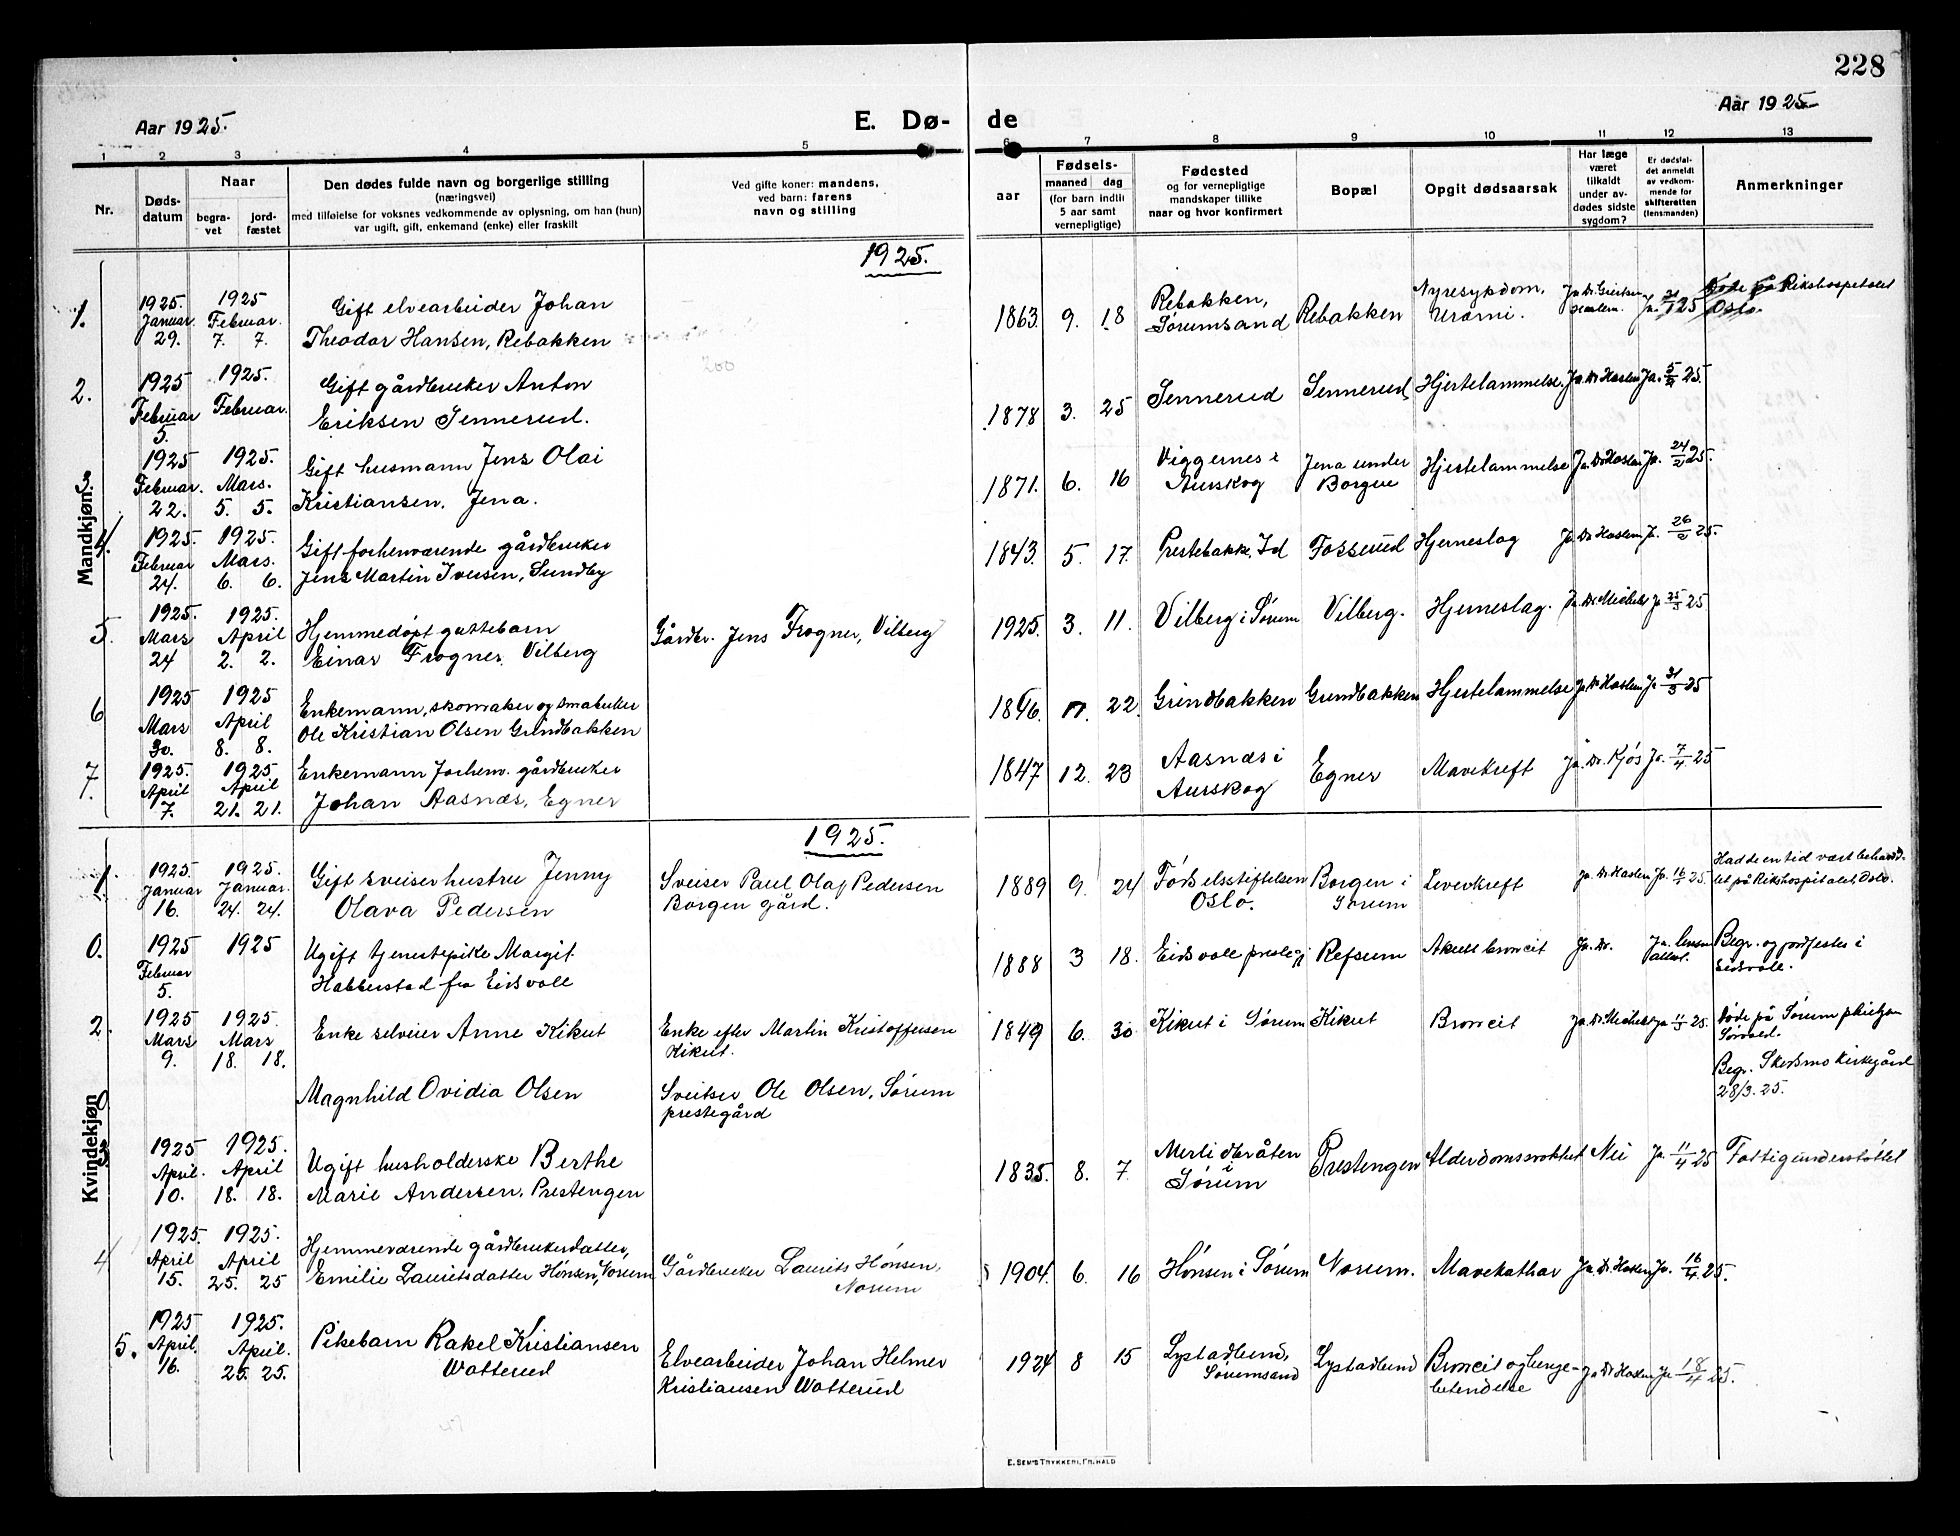 228
Aar 1925.
E. Dø- de
Aar 1925
1 2 3 4 5 6 7 8 9 10 11 12 13
Nr.
Døds-
datum
Naar
begra-
vet
jord-
fæstet
Den dødes fulde navn og borgerlige stilling
(næringsvei)
med tilføielse for voksnes vedkommende av oplysning, om han (hun)
var ugift, gift, enkemand (enke) eller fraskilt
Ved gifte koner: mandens,
ved barn: farens
navn og stilling
aar
Fødsels-
maaned dag
(for barn indtil
5 aar samt
vernepligtige)
Fødested
og for vernepligtige
mandskaper tillike
naar og hvor konfirmert
Bopæl
Opgit dødsaarsak
Har læge
været
tilkaldt
under av-
dødes sidste
sygdom?
Er dødsfal-
det anmeldt
av vedkom-
mende for
skifteretten
(lensmanden)
Anmerkninger
1925.
Mandkjøn.
1.
1925. Januar 29.
1925 Februar 7. 7.
Gift elvearbeider Johan
Theodor Hansen, Rebakken
1863. 9. 18
Rebakken,
Sørumsand
Rebakken
Nyresykdom.
Uræmi.
Haslem.
Døde på Rikshospitalet
Oslo.
2.
1925 Februar 5.
1925. Februar.
Gift gårdbruker Anton
Eriksen Sennerud.
1878 3. 25
Sennerud
Sennerud,
Hjertelammelse.
Ja. Dr Haslem
Ja. 5/2 25.
3.
1925 Februar. 22.
1925. Mars. 5. 5.
Gift husmann Jens Olai
Kristiansen. Jena.
1871. 6. 16
Viggernes i
Aurskog
Jena under
Borgen
Hjertelammelse
Ja. Dr Haslem
Ja. 24/2 25.
4.
1925. Februar 24.
1925. Mars. 6. 6.
Gift forhenværende gårdbruker
Jens Martin Iversen, Sundby
1843. 5. 17.
Prestebakke, Id
Fosserud
Hjerneslag
Ja Dr Haslem
Ja. 26/2 25.
5.
1925. Mars 24
1925. April 2. 2.
Hjemmedøpt guttebarn
Einar Frogner, Vilberg
Gårdbr. Jens Frogner, Vilberg
1925. 3. 11.
Vilberg i Sørum
Vilberg.
Hjerneslag.
Ja 25/3 25
6
1925 Mars 30.
1925 April 8. 8.
Enkemann, skomaker og småbruker
Ole Kristian Olsen Grindbakken
22.
Grindbakken
Grindbakken
Hjertelammelse
Ja Dr Haslem
Ja 31/3 25
7.
1925. April 7.
1925 April 21. 21.
Enkemann forhem. gårdbruker
Johan Aasnæs, Egner
1847 12. 23
Aasnæs i
Aurskog
Egner
Mavekreft
Ja. Dr. Kjøs
Ja. 7/4 25
1925.
Kvindekjøn
1.
1925. Januar 16.
1925. Januar. 24. 24.
Gift sveiserhustru Jenny
Olava Pedersen
Sveiser Paul Olaf Pedersen
Borgen gård.
1889 9. 24
Fødselsstiftelsen
Oslo.
Borgen i
Sørum
Leverkreft
Ja. Dr Haslem
Ja. 16/1 25.
Hadde en tid vært behand-
let på Rikshospitalet, Oslo.
0.
1925 Februar 5.
1925
Ugift tjenestepike Margit
Habberstad fra Eidsvoll
1888 3 18.
Eidsvoll prestegj
Refsum
Akutt broncit
Ja. Dr.
Begr. og jordfestet i
Eidsvoll.
2.
1925 Mars 9.
1925. Mars 18. 18.
Enke selveier Anne Kikut
Enke efter Martin Kristoffersen
Kikut.
1849 6. 30
Kikut i Sørum
Kikut
Broncit
Ja 11/3 25.
Døde på Sørum pleiehjem
0
Magnhild Ovidia Olsen
Sveitser Ole Olsen, Sørum
prestegård
Begr. Skedsmo kirkegård
28/3. 25.
3.
1925 April. 10.
1925. April 18. 18.
Ugift husholderske Berthe
Marie Andersen, Prestengen
1835. 8. 7.
i
Sørum
Prestengen
Alderdomssvakhet
Nei
Ja. 11/4 25
Fattigunderstøttet
4
1925. April 15.
1925. April 25. 25
Hjemmeværende gårdbrukerdatter,
Emilie Lauritsdatter Hönsen, Norum
Gårdbruker Laurits Hönsen,
Norum
1904. 6. 16
Hönsen i Sørum
Norum.
Mavekathar
Ja Dr. Haslem
Ja. 16/4 25.
5.
1925 April. 16.
1925. April. 25. 25.
Pikebarn Rakel Kristiansen
Watterud
Elvearbeider Johan Helmer
Kristiansen Watterud
1924 8 15
Lystadlund,
Sørumsand
Lystadlund
Broncit og lunge-
betendelse
Ja Dr Haslem
Ja 18/4 25.
E. SEM'S TRYKKERI, FR.HALD